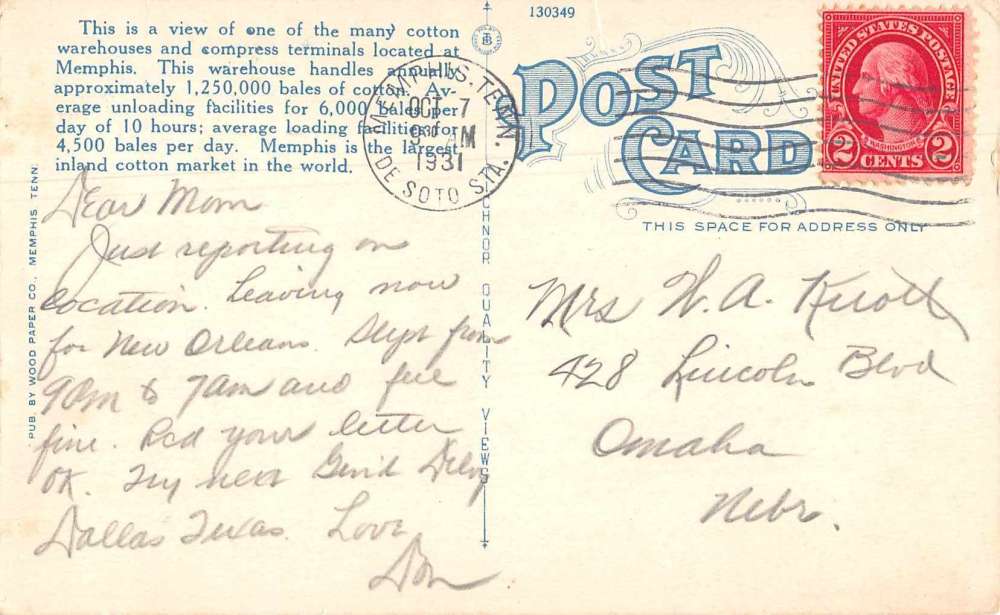 130349
This is a view of one of the many cotton
warehouses and compress terminals located at
Memphis. This warehouse handles annually
approximately 1,250,000 bales of cotton. Av-
erage unloading facilities for 6,000 bales per
day of 10 hours; average loading facilities for
4,500 bales per day. Memphis is the largest
inland cotton market in the world.
MEMPHIS, TENN.
OCT 7
1931
DE SOTO STA.
POST
CARD
UNITED STATES POSTAGE
WASHINGTON
2 CENTS 2
THIS SPACE FOR ADDRESS ONLY
PUB. BY WOOD PAPER CO., MEMPHIS TENN.
TICHNOR QUALITY VIEWS
Dear Mom
Just reporting on
location. Leaving now
for New Orleans. Slept from
9PM to 7am and feel
fine. Rcd your letter
OK. Try next Gen'l Delvy
Dallas Texas. Love
Don
Mrs W. A. Knoll
428 Lincoln Blvd
Omaha
Nebr.